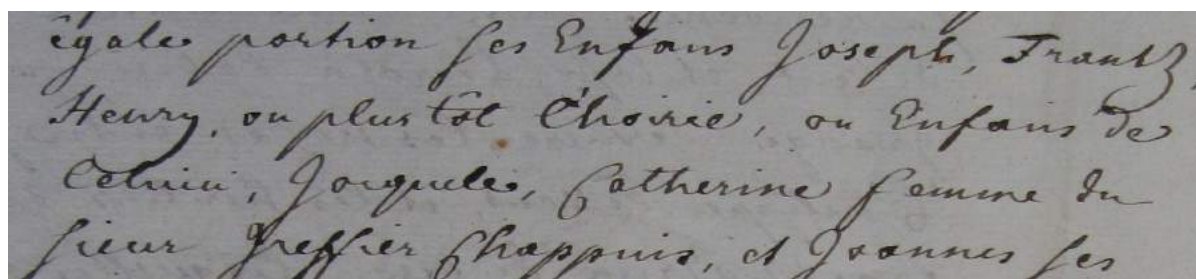 égale portion ses Enfans Joseph, Frantz,
Henry, ou plus tôt l'hoirie, ou Enfans de
Celuici, Jorguele, Catherine femme du
sieur Greffier Chappuis, et Joannes ses